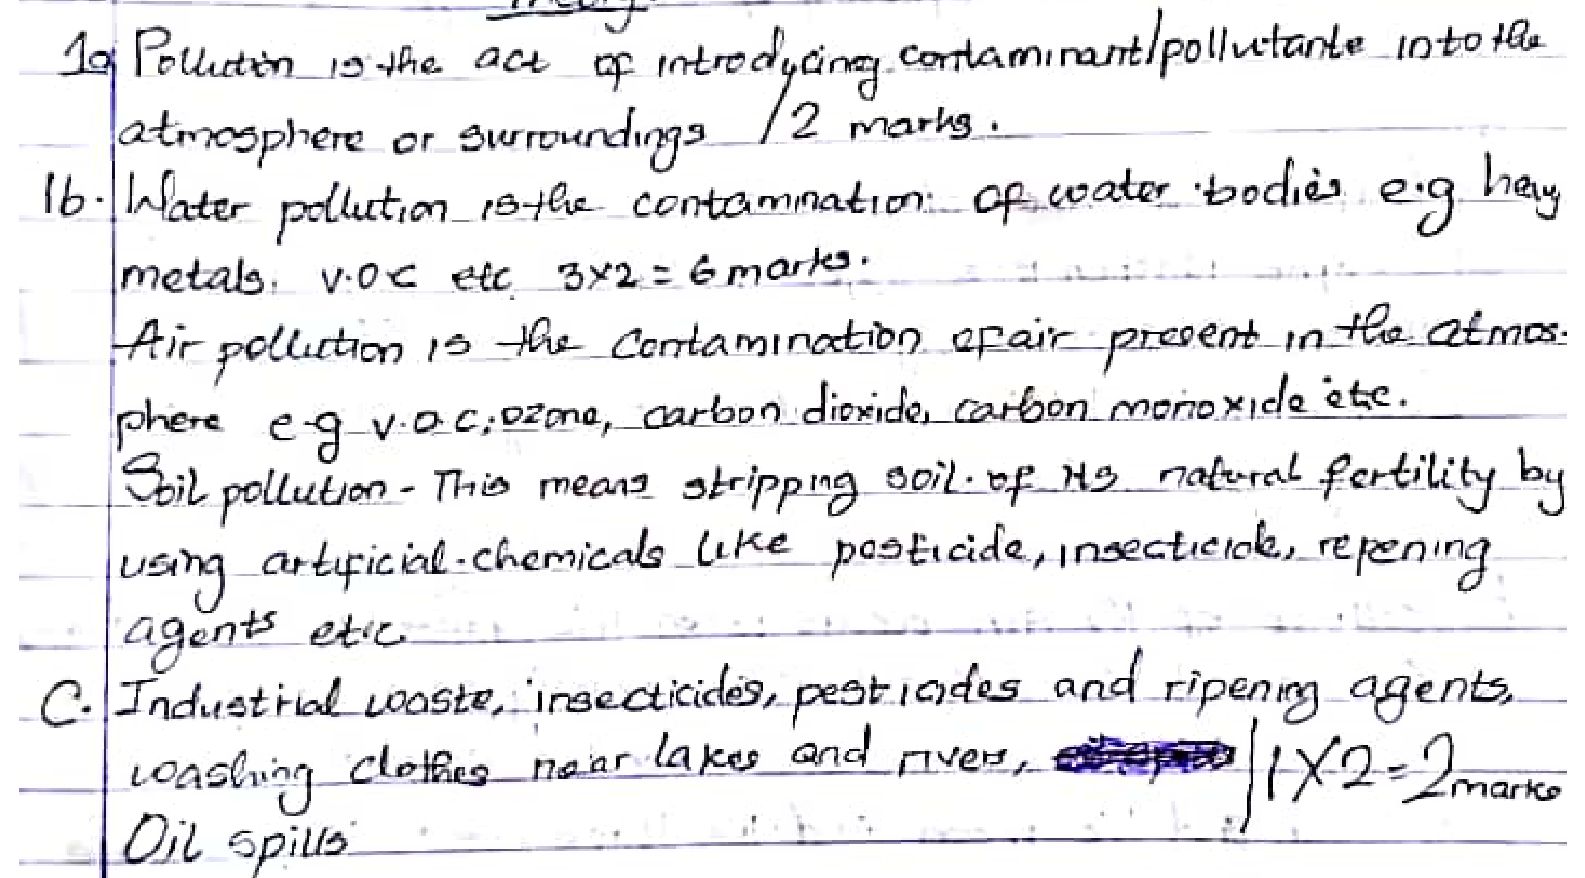 Theory
1a Pollution is the act of introducing contaminant/pollutante into the
atmosphere or surroundings /2 marks.
1b. Water pollution is the contamination of water bodies e.g heavy
metals. V.O.C etc 3x2 = 6 marks.
Air pollution is the contamination of air present in the atmos-
phere e-g v.o.c, ozone, carbon dioxide, carbon monoxide etc.
Soil pollution - This means stripping soil of its natural fertility by
using artificial chemicals like pesticide, insecticide, repening
agents etc
C. Industrial waste, insecticides, pesticides and ripening agents,
washing clothes near lakes and rivers, |1X2=2 marks
Oil spills